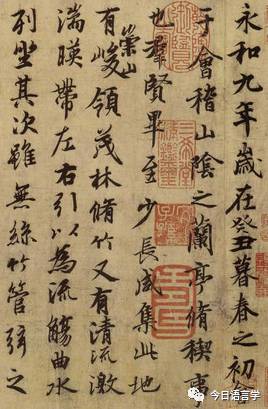 永和九年歲在癸丑暮春之初會
于會稽山陰之蘭亭脩稧事
也羣賢畢至少長咸集此地
有崇山峻領茂林脩竹又有清流激
湍暎帶左右引以為流觴曲水
列坐其次雖無絲竹管弦之
今日语言学